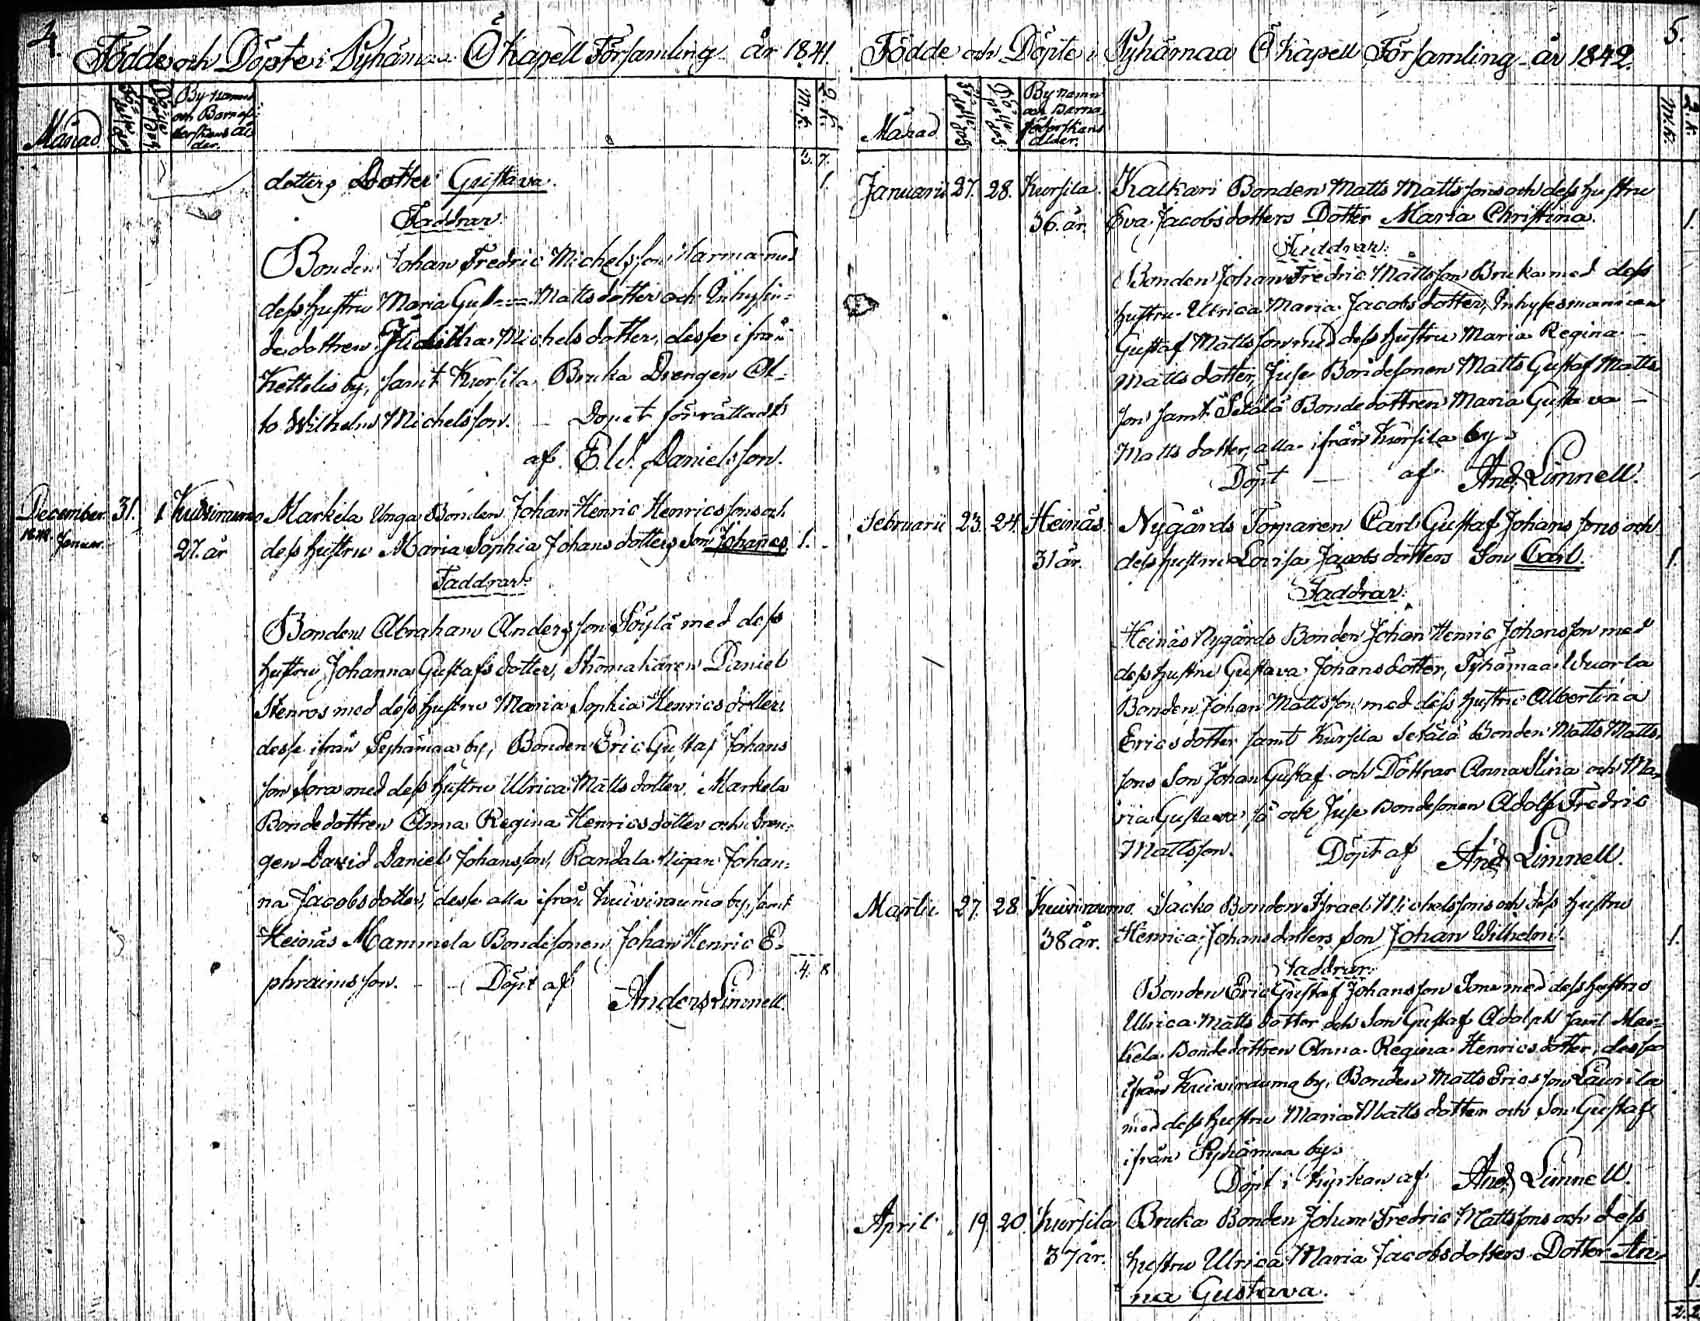 4.
Födde och Döpte i Pyhämaa Ö Kapell Församling år 1841.
Månad
By namn
och Barnaföderskans ålder.
M.K. Q.K.
3. 7.
dotters Dotter Gustava. 1.
Faddrar:
Bonden Johan Fredric Michelsson Harma med
dess hustru Maria Matts dotter och Inhysin=
de dottren Michels dotter, desse ifrån
Kettelis by, samt Kursila Bruka Drengen Ot=
to Wilhelm Michelsson. Dopet förrättadt
af E. W. Danielsson.
December 31. 1 Kuivirauma Markela Unga Bonden Johan Henric Henricssons och
1842. Januar. 27. år dess hustru Maria Sophia Johans dotters Son Johannes 1.
Faddrar:
Bonden Abraham Andersson Söylä med dess
hustru Johanna Gustafs dotter, Skomakaren Daniel
Stenros med dess hustru Maria Sophia Henrics dotter,
desse ifrån Pyhämaa by, Bonden Eric Gustaf Johans
son Sora med dess hustru Ulrica Matts dotter, Markela
Bondedottren Anna Regina Henrics dotter och Dren=
gen David Daniel Johansson, Randala Pigan Johan=
na Jacobs dotter, desse alla ifrån Kuivirauma by, samt
Heinäs Mammela Bondesonen Johan Henric E=
phraimsson. Döpt af 4. 8
Anders Linnell.
5.
Födde och Döpte i Pyhämaa Ö Kapell Församling år 1842.
Månad
By namn
och Barna
föderskans
ålder.
M.K. Q.K.
Januarii 27. 28. Kursila Kalkari Bonden Matts Mattssons och dess hustru
36. år. Eva Jacobs dotters Dotter Maria Christina. 1.
Faddrar:
Bonden Johan Fredric Mattsson Bruka med dess
hustru Ulrica Maria Jacobs dotter, Inhysesmannen
Gustaf Mattsson med dess hustru Maria Regina
Matts dotter, Juse Bondesonen Matts Gustaf Matts
son samt Setälä Bondedottren Maria Gustava
Matts dotter, alla ifrån Kursila by.
Döpt af And. Linnell.
Februarii 23. 24. Heinäs Nygårds Torparen Carl Gustaf Johans sons och
31 år. dess hustru Lovisa Jacobs dotters Son Carl. 1.
Faddrar:
Heinäs Nygårds Bonden Johan Henric Johansson med
dess hustru Gustava Johans dotter, Pyhämaa Wuorla
Bonden Johan Mattsson med dess hustru Albertina
Erics dotter samt Kursila Setälä Bonden Matts Matts
sons Son Johan Gustaf och Döttrar Anna Stina och Ma=
ria Gustava så ock Juse Bondesonen Adolf Fredric
Mattsson. Döpt af And. Linnell.
Martii 27. 28. Kuivirauma Jacko Bonden Israel Michelssons och dess hustru
38 år. Henrica Johans dotters Son Johan Wilhelm. 1.
Faddrar:
Bonden Eric Gustaf Johansson Sora med dess hustru
Ulrica Matts dotter och Son Gustaf Adolph samt Mar=
kela Bondedottren Anna Regina Henrics dotter, desse
ifrån Kuivirauma by, Bonden Matts Ericsson Laurila
med dess hustru Maria Matts dotter och Son Gustaf
ifrån Pyhämaa by.
Döpt i Kyrkan af And. Linnell.
April 19. 20. Kursila Bruka Bonden Johan Fredric Mattssons och dess
37 år. hustru Ulrica Maria Jacobs dotters Dotter An=
na Gustava. 1.
2. 2